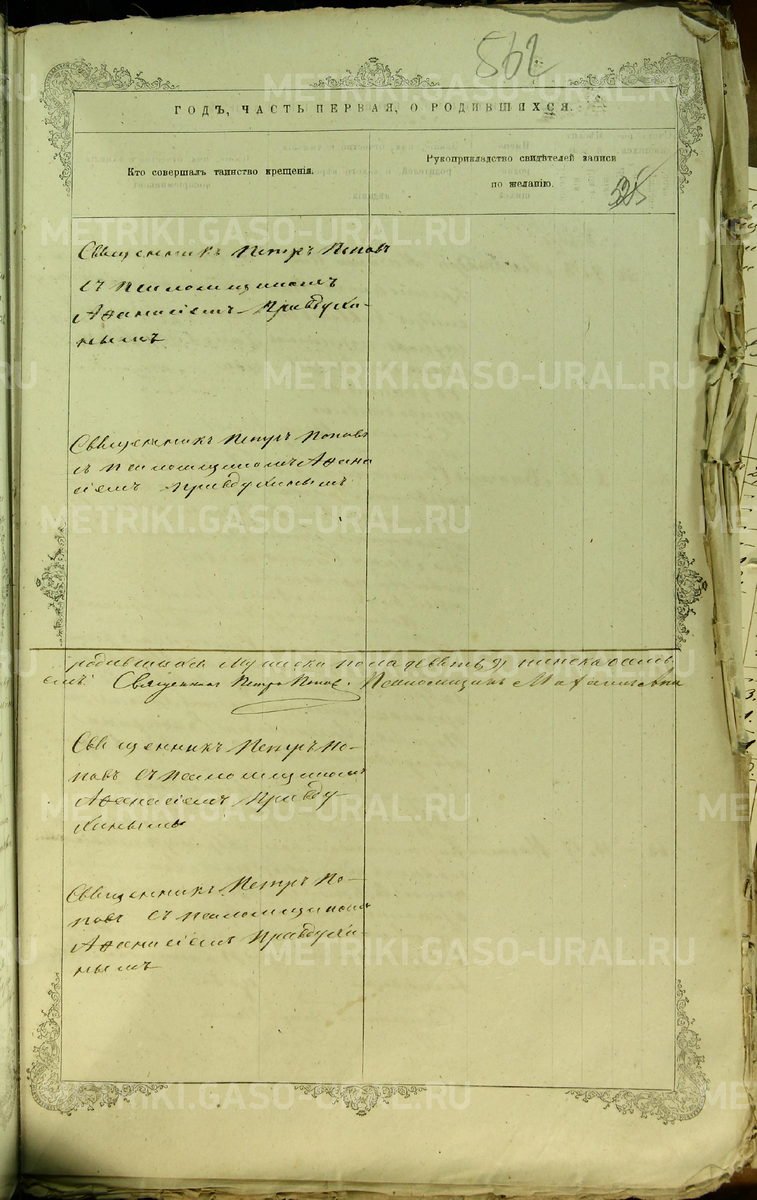 562
ГОДЪ, ЧАСТЬ ПЕРВАЯ, О РОДИВШИХСЯ.
Кто совершалъ таинство крещенія.
Рукоприкладство свидѣтелей записи
по желанію.
Священникъ Петръ Поповъ
съ псаломщикомъ
Афанасіемъ Правдухи-
нымъ
Священникъ Петръ Поповъ
съ псаломщикомъ Афана
сіемъ Правдухинымъ
родившихся мужска пола девять, 9, женска
Священникъ Петръ Поповъ. Псаломщикъ
Священникъ Петръ По-
повъ съ псаломщикомъ
Афанасіемъ Правду-
хинымъ
Священникъ Петръ По-
повъ съ псаломщикомъ
Афанасіемъ Правдухи-
нымъ
METRIKI.GASO-URAL.RU